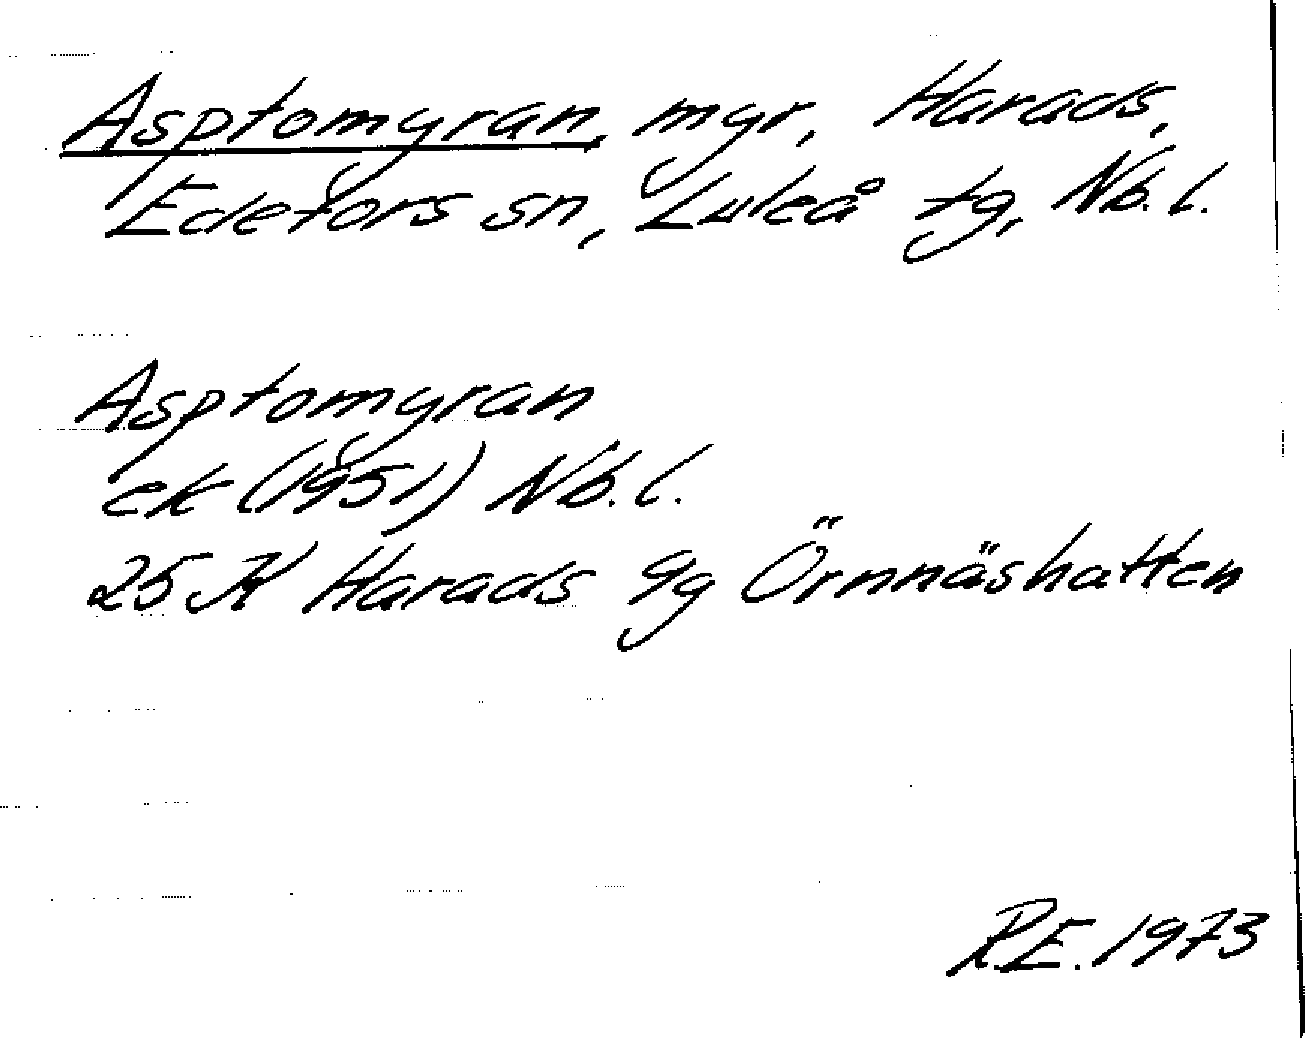 Asptomyran, myr, Harads,
Edefors sn, Luleå tg, Nb. l.
Asptomyran
ek (1951) Nb. l.
25 K Harads 9g Örnnäshatten
R.E. 1973